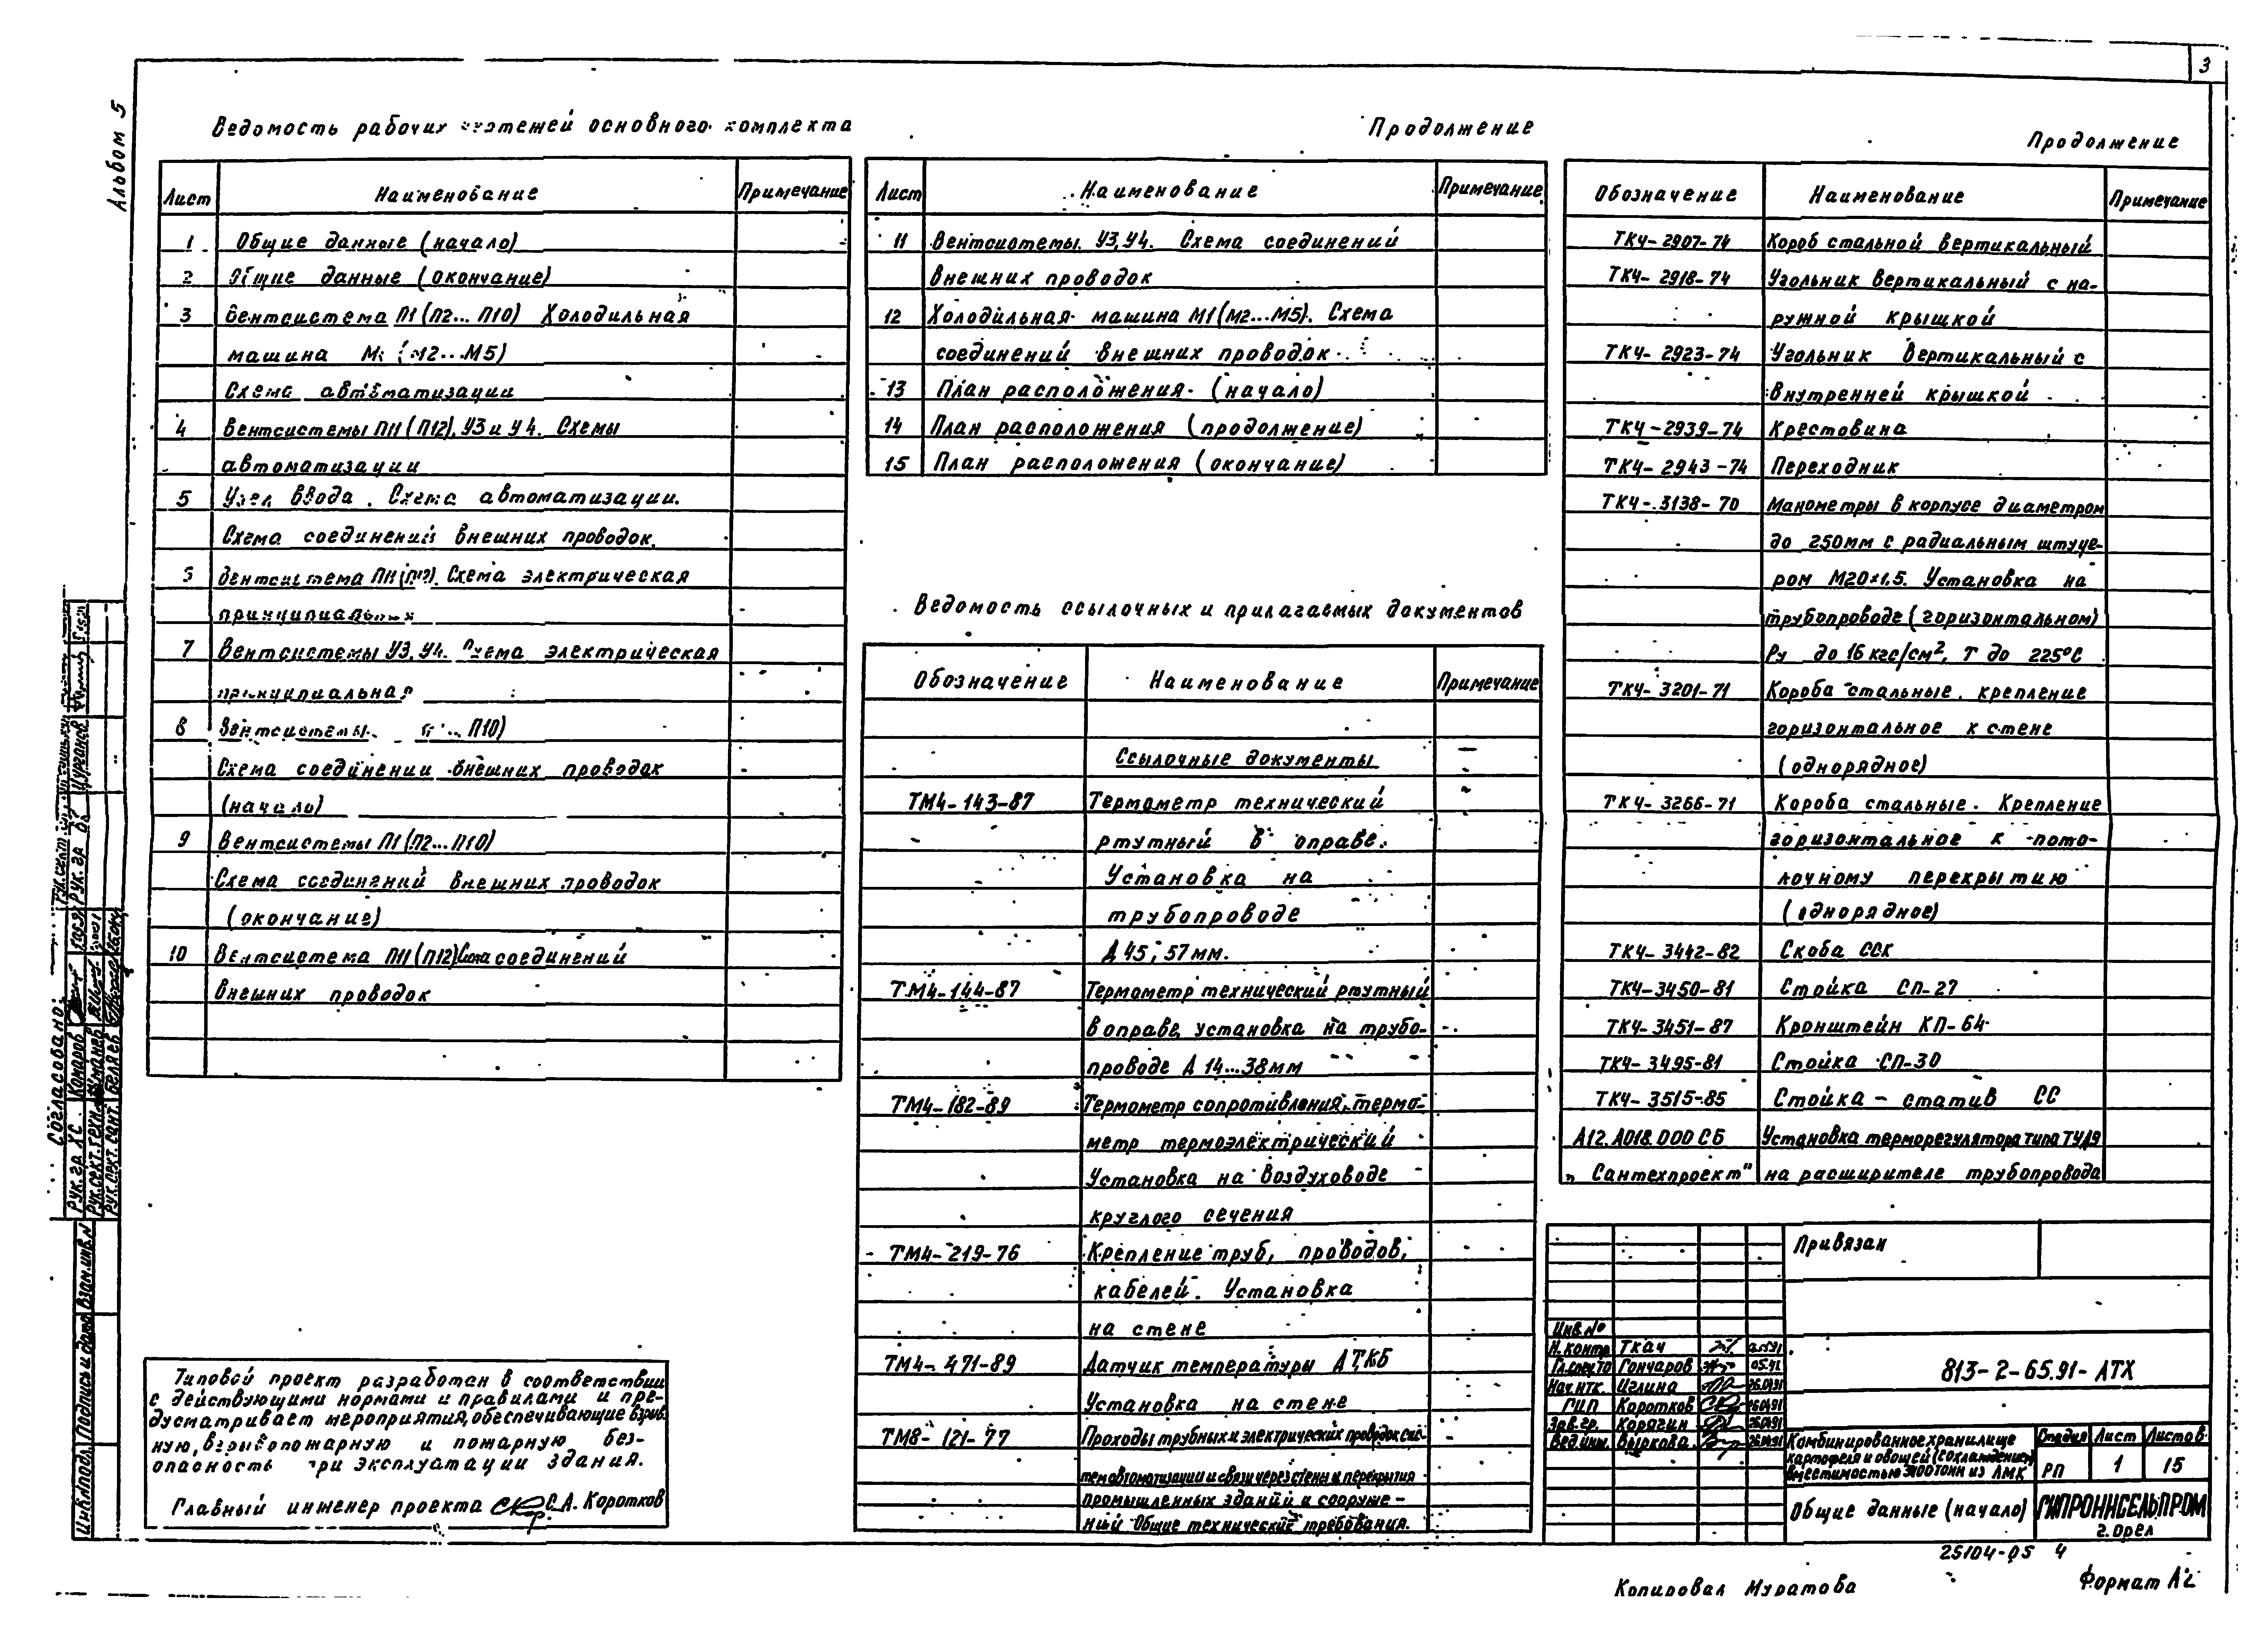 3
Альбом 5
Ведомость рабочих чертежей основного комплекта
Лист Наименование Примечание
1 Общие данные (начало)
2 Общие данные (окончание)
3 Вентсистема П1 (П2... П10) Холодильная
машина М1 (М2...М5)
Схема автоматизации
4 Вентсистемы П11 (П12), У3 и У4. Схемы
автоматизации
5 Узел ввода. Схема автоматизации.
Схема соединений внешних проводок.
6 Вентсистема П11 (П12). Схема электрическая
принципиальная
7 Вентсистемы У3, У4. Схема электрическая
принципиальная
8 Вентсистемы ... П10)
Схема соединении внешних проводок
(начало)
9 Вентсистемы П1 (П2... П10)
Схема соединений внешних проводок
(окончание)
10 Вентсистема П11 (П12) Схема соединений
внешних проводок
Типовой проект разработан в соответствии
с действующими нормами и правилами и пре-
дусматривает мероприятия, обеспечивающие взрыв-
ную, взрывопожарную и пожарную без-
опасность при эксплуатации здания.
Главный инженер проекта С.А. Коротков
Продолжение
Лист Наименование Примечание
11 Вентсистемы У3, У4. Схема соединений
внешних проводок
12 Холодильная машина М1 (М2...М5). Схема
соединений внешних проводок
13 План расположения (начало)
14 План расположения (продолжение)
15 План расположения (окончание)
Ведомость ссылочных и прилагаемых документов
Обозначение Наименование Примечание
Ссылочные документы
ТМ4-143-87 Термометр технический
ртутный в оправе.
Установка на
трубопроводе
Д 45; 57 мм.
ТМ4-144-87 Термометр технический ртутный
в оправе, установка на трубо-
проводе Д 14...38 мм
ТМ4-182-89 Термометр сопротивления, термо-
метр термоэлектрический
Установка на воздуховоде
круглого сечения
ТМ4-219-76 Крепление труб, проводов,
кабелей. Установка
на стене
ТМ4-471-89 Датчик температуры АТКБ
Установка на стене
ТМ8-121-77 Проходы трубных и электрических проводок сис-
тем автоматизации и связи через стены и перекрытия
промышленных зданий и сооруже-
ний Общие технические требования.
Продолжение
Обозначение Наименование Примечание
ТКЧ-2907-74 Короб стальной вертикальный
ТКЧ-2918-74 Угольник вертикальный с на-
ружной крышкой
ТКЧ-2923-74 Угольник вертикальный с
внутренней крышкой
ТКЧ-2939-74 Крестовина
ТКЧ-2943-74 Переходник
ТКЧ-3138-70 Манометры в корпусе диаметром
до 250мм с радиальным штуце-
ром М20×1,5. Установка на
трубопроводе (горизонтальном)
Ру до 16 кгс/см², Т до 225°С
ТКЧ-3201-71 Короба стальные. крепление
горизонтальное к стене
(однорядное)
ТКЧ-3266-71 Короба стальные. Крепление
горизонтальное к пото-
лочному перекрытию
(однорядное)
ТКЧ-3442-82 Скоба ССК
ТКЧ-3450-81 Стойка СП-27
ТКЧ-3451-87 Кронштейн КП-64
ТКЧ-3495-81 Стойка СП-30
ТКЧ-3515-85 Стойка - статив СС
А12.А018.000 СБ Установка терморегулятора типа ТУДЭ
„Сантехпроект" на расширителе трубопровода
Привязан
Инв.№
Н.контр. Ткач
Гл.спец.ТО Гончаров 05.91
Нач.НТК. Иглина 26.04.91
ГИП Коротков 26.04.91
Зав.гр. Корягин 26.04.91
Вед.инж. Выркова 26.04.91
813-2-65.91-АТХ
Комбинированное хранилище
картофеля и овощей (с охлаждением)
вместимостью тонн из ЛМК
Стадия Лист Листов
РП 1 15
Общие данные (начало)
ГИПРОНИСЕЛЬПРОМ
г. Орел
25104-05 4
Копировал Муратова
Формат А2
Согласовано:
Рук.гр. ХС. Комаров
Рук.сект.техн.
Рук.сект.сант. Беляев
Рук.гр. Цурганов
Инв.№подл. Подпись и дата Взам.инв.№